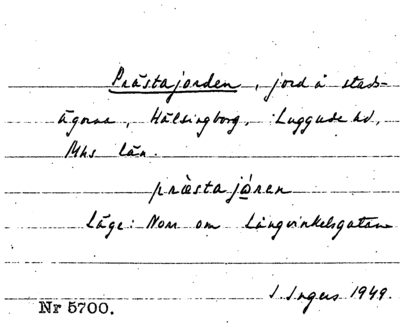 Prästajorden, jord å stads-
ägorna, Hälsingborg, Luggude hd,
Mhs län.
prästa jǫ́ren
Läge: Norr om Långvinkelsgatan
I. Ingers 1949.
Nr 5700.